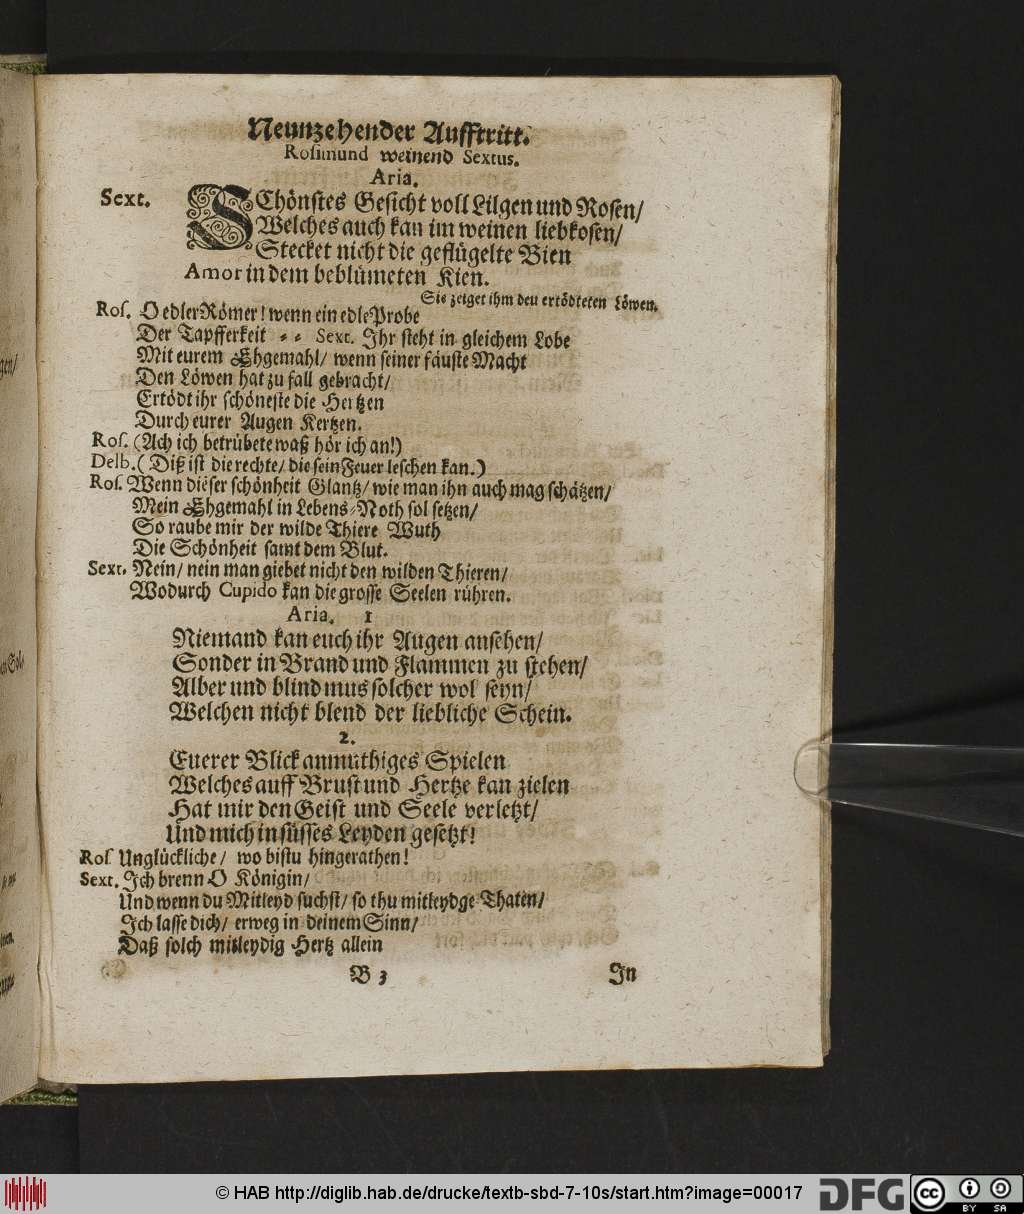 Neunzehender Aufftritt.
Rosimund weinend Sextus.
Aria.
Sext. SChönstes Gesicht voll Lilgen und Rosen/
Welches auch kan im weinen liebkosen/
Stecket nicht die geflügelte Bien
Amor in dem beblümeten Kien.
Sie zeiget ihm den ertödteten Löwen.
Ros. O edler Römer! wenn ein edle Probe
Der Tapfferkeit -- Sext. Ihr steht in gleichem Lobe
Mit eurem Ehgemahl/ wenn seiner fäuste Macht
Den Löwen hat zu fall gebracht/
Ertödt ihr schöneste die Hertzen
Durch eurer Augen Kertzen.
Ros. (Ach ich betrübete waß hör ich an!)
Delb. (Diß ist die rechte/ die sein Feuer leschen kan.)
Ros. Wenn dieser schönheit Glantz/ wie man ihn auch mag schätzen/
Mein Ehgemahl in Lebens-Noth sol setzen/
So raube mir der wilde Thiere Wuth
Die Schönheit samt dem Blut.
Sext. Nein/ nein man giebet nicht den wilden Thieren/
Wodurch Cupido kan die grosse Seelen rühren.
Aria. 1
Niemand kan euch ihr Augen ansehen/
Sonder in Brand und Flammen zu stehen/
Alber und blind mus solcher wol seyn/
Welchen nicht blend der liebliche Schein.
2.
Euerer Blick anmuthiges Spielen
Welches auff Brust und Hertze kan zielen
Hat mir den Geist und Seele verletzt/
Und mich in süsses Leyden gesetzt!
Ros Unglückliche/ wo bistu hingerathen!
Sext. Ich brenn O Königin/
Und wenn du Mitleyd suchst/ so thu mitleydge Thaten/
Ich lasse dich/ erweg in deinem Sinn/
Daß solch mitleydig Hertz allein
B 3 In
© HAB http://diglib.hab.de/drucke/textb-sbd-7-10s/start.htm?image=00017
DFG
cc BY SA